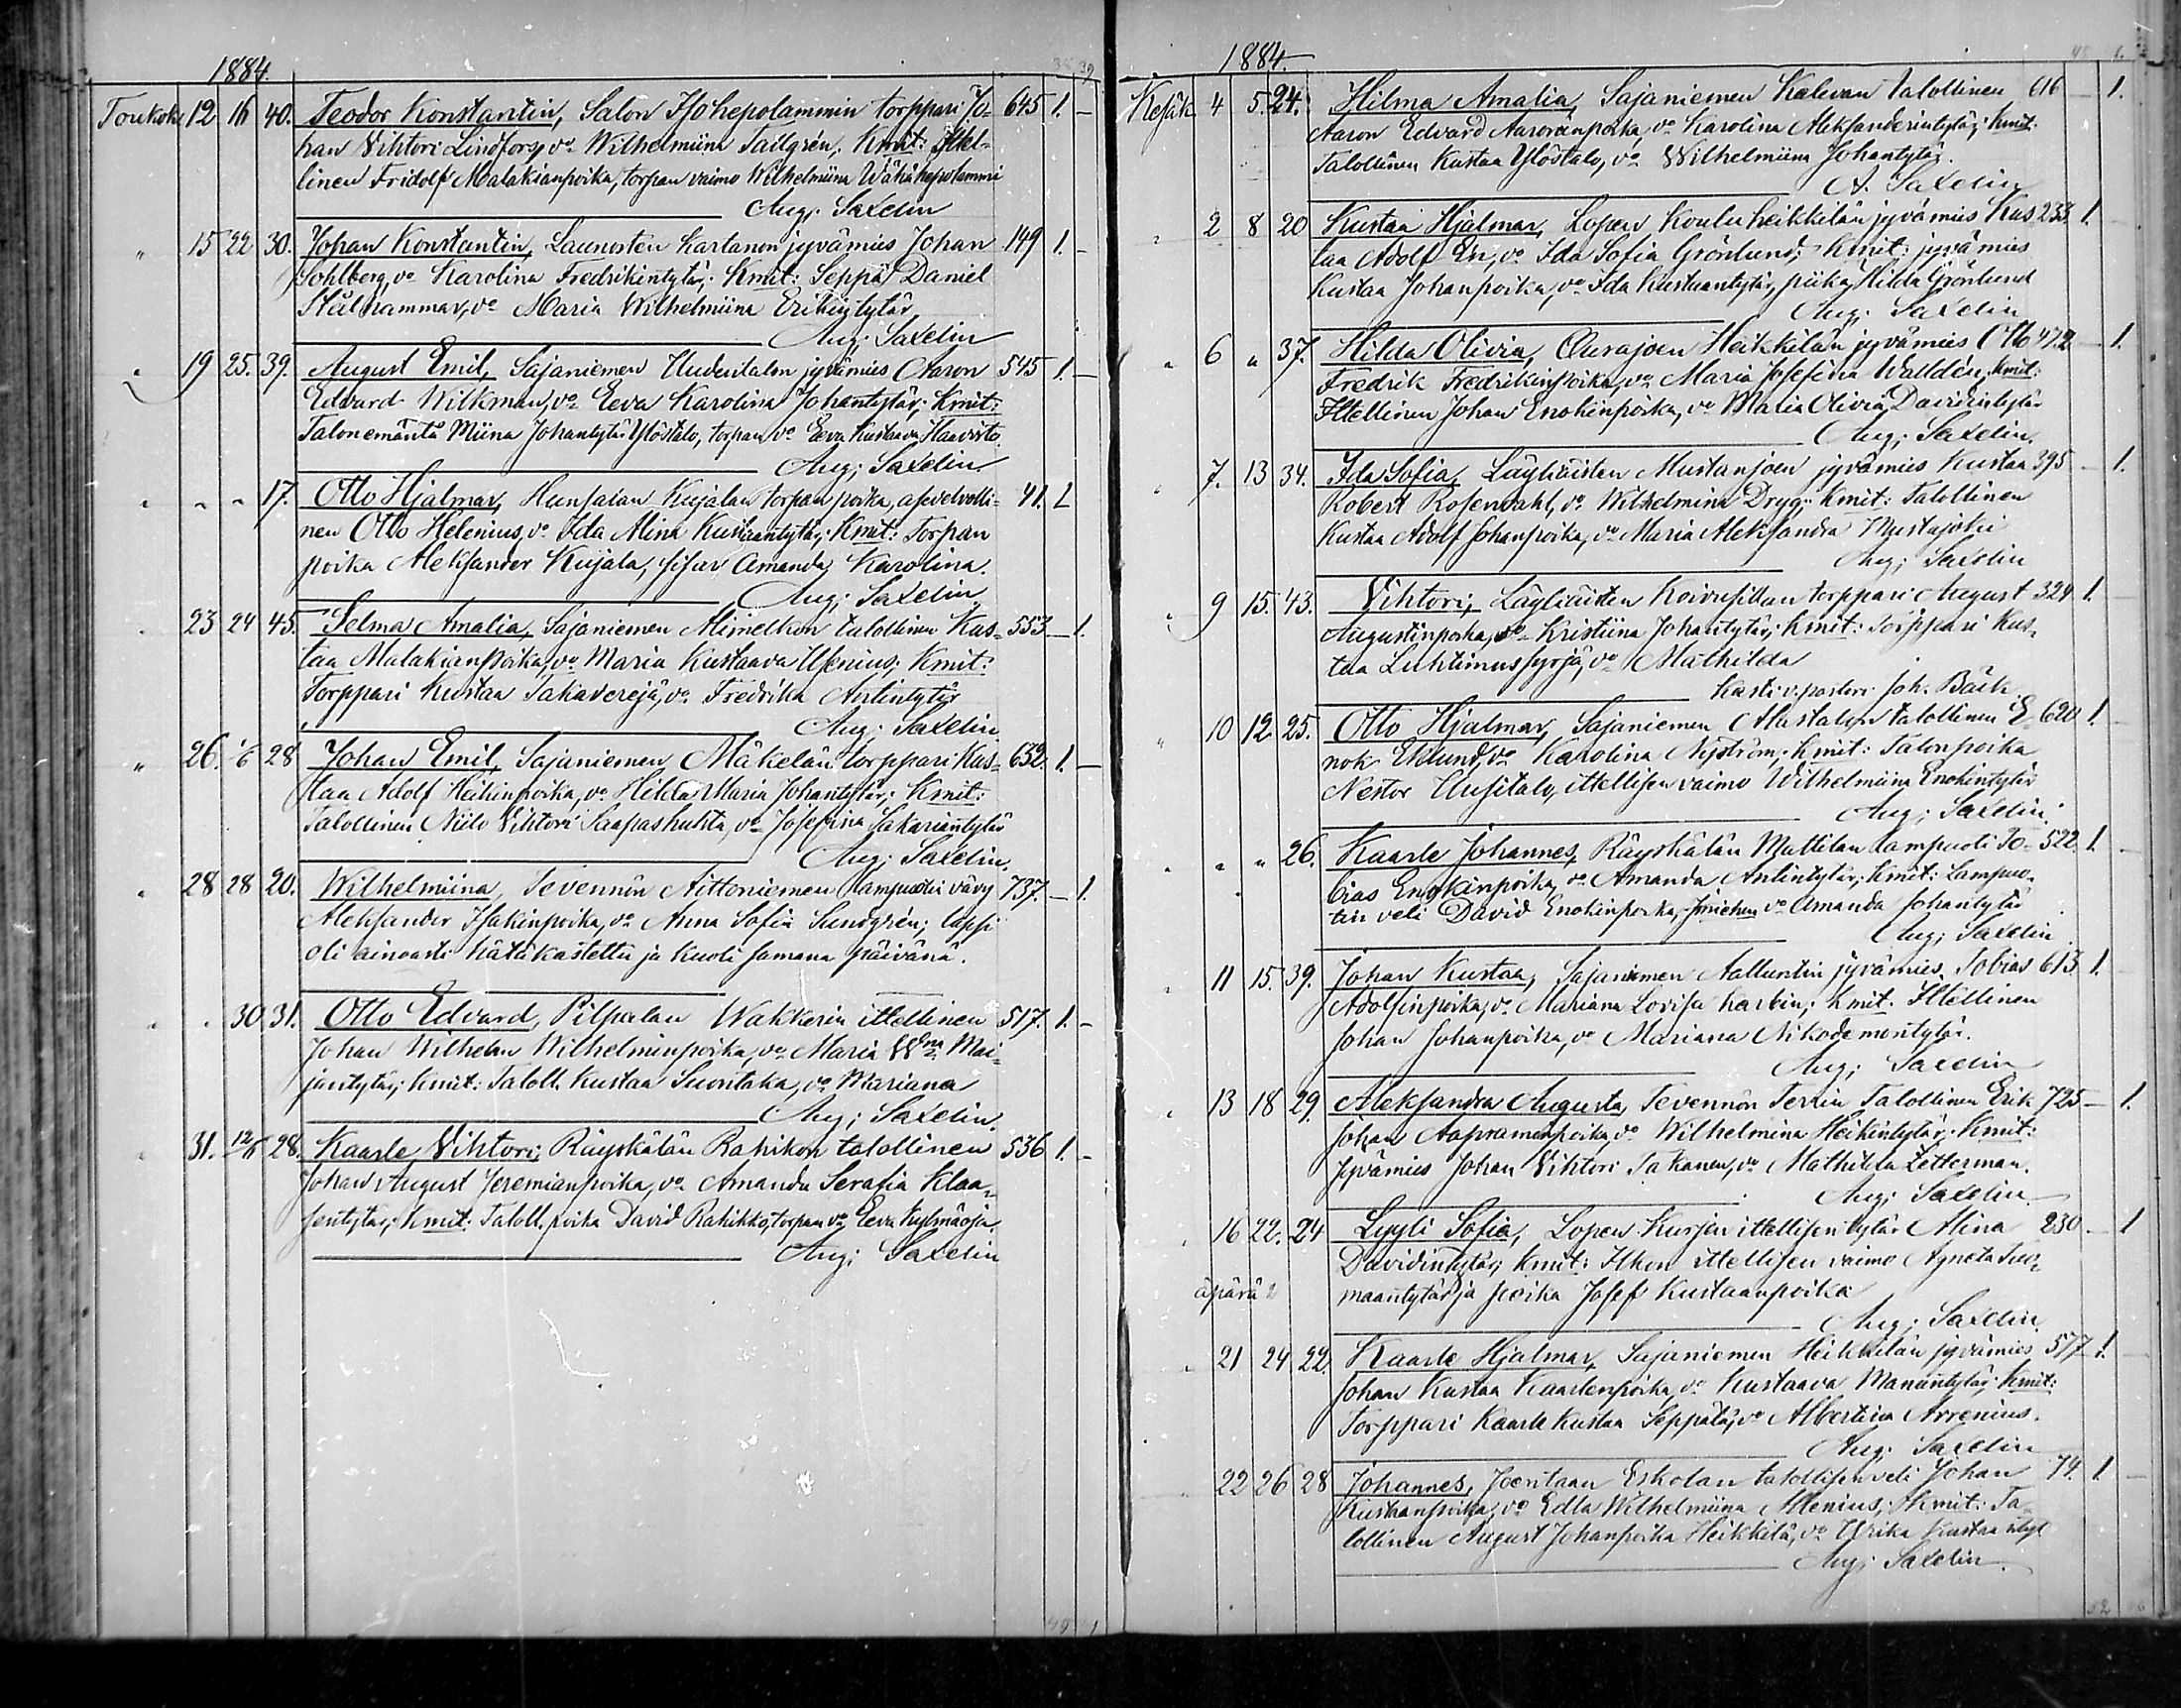 1884.
Toukok. 12 16 40. Teodor Konstantin, Salon Isohepolammin torppari Jo- 645 1. –
han Vihtori Lindfors, vo Wilhelmiina Tailgrén; Kmit: Ittel-
linen Fridolf Malakianpoika, torpan vaimo Wilhelmiina Wähähepolammi
Aug. Saxelin
" 15 22 30. Johan Konstantin, Launosten kartanon jyvämies Johan 149 1. –
Sohlberg, vo Karolina Fredrikintytär; Kmit: Seppä Daniel
Stålhammar, vo Maria Wilhelmiina Erikintytär
Aug. Saxelin
" 19 25. 39. August Emil, Sajaniemen Uudentalon jyvämies Aaron 545 1. –
Edvard Wilkman, vo Eeva Karolina Johantytär; Kmit:
Talonemäntä Miina Johantytär Ylöstalo, torpan vo Eeva Kustaava Haavisto
Aug; Saxelin
" " " 17. Otto Hjalmar, Hunsalan Kujalan torpan poika, asevelvolli- 41. 1
nen Otto Helenius, vo Ida Mina Kustaantytär; Kmit: Torpan
poika Aleksander Kujala, sisar Amanda Karolina.
Aug; Saxelin
" 23 24 45. Selma Amalia, Sajaniemen Mimelkon talollinen Kus- 553 – 1.
taa Malakianpoika, vo Maria Kustaava Ulenius; Kmit:
Torppari Kustaa Takaverejä, vo Fredrika Antintytär
Aug; Saxelin
" 26. 1/6 28 Johan Emil, Sajaniemen Mäkelän torppari Kus- 632. 1. –
taa Adolf Heikinpoika, vo Hilda Maria Johantytär; Kmit:
Talollinen Niilo Vihtori Saapashuhta, vo Josefina Sakariantytär
Aug; Saxelin.
" 28 28 20. Wilhelmiina, Tevennön Aittoniemen lampuoti vävy 737. – 1.
Aleksander Isakinpoika, vo Anna Sofia Sundgrén; lapsi
oli ainoasti hätäkastettu ja kuoli samana päivänä.
" " 30 31. Otto Edvard, Pilpalan Wakkerin ittellinen 517. 1. –
Johan Wilhelm Wilhelminpoika, vo Maria Wna Mai-
jantytär; Kmit: Taloll. Kustaa Suontaka, vo Mariana
Aug; Saxelin.
" 31. 12/6 28. Kaarle Vihtori, Räyskälän Rahikon talollinen 536 1. –
Johan August Jeremianpoika, vo Amanda Serafia Klaa-
sentytär; Kmit: Taloll. poika David Rahikko, torpan vo Eeva Kylmäoja.
Aug; Saxelin
1884.
Kesäk. 4 5. 24. Hilma Amalia, Sajaniemen Kalevan talollinen 616 – 1.
Aaron Edvard Aaroninpoika, vo Karolina Aleksanderintytär; Kmit:
Talollinen Kustaa Ylöstalo, vo Wilhelmiina Johantytär.
A. Saxelin
" 2 8 20 Kustaa Hjalmar, Lopen Kouluheikkilän jyvämies Kus- 233 1.
taa Adolf En, vo Ida Sofia Grönlund; Kmit: jyvämies
Kustaa Johanpoika, vo Ida Kustaantytär, piika Hilda Grönlund
Aug; Saxelin
" 6 " 37. Hilda Olivia, Ourajoen Heikkilän jyvämies Otto 472 – 1.
Fredrik Fredrikinpoika, vo Maria Josefina Walldén; Kmit:
Ittellinen Johan Enokinpoika, vo Maria Olivia Davidintytär
Aug; Saxelin.
" 7. 13 34. Ida Sofia, Läyliäisten Mustanjoen jyvämies Kustaa 395 – 1.
Robert Rosendahl, vo Wilhelmina Dryg; Kmit: Talollinen
Kustaa Adolf Johanpoika, vo Maria Aleksandra Mustajoki
Aug; Saxelin
" 9 15. 43. Vihtori, Läyliäisten Koivusillan torppari August 324 1.
Augustinpoika, vo Kristiina Johantytär; Kmit: Torppari Kus-
taa Luhtimussyrjä, vo Mathilda
Kasti v. pastori Joh. Bäck.
" 10 12. 25. Otto Hjalmar, Sajaniemen Allastalon talollinen E- 620 1.
nok Eklund, vo Karolina Nyström; Kmit: Talonpoika
Nestor Uusitalo, ittellisen vaimo Wilhelmiina Enokintytär
Aug; Saxelin.
" " " 26. Kaarle Johannes, Räyskälän Mattilan lampuoti To- 522 1.
bias Enokinpoika, vo Amanda Antintytär; Kmit: Lampuo-
tin veli David Enokinpoika, vo Amanda Johantytär
Aug; Saxelin
" 11 15. 39. Johan Kustaa, Sajaniemen Aalluntin jyvämies Tobias 613 1.
Adolfinpoika, vo Mariana Lovisa Karbin; Kmit. Ittellinen
Johan Johanpoika, vo Mariana Nikodemontytär.
Aug; Saxelin
" 13 18 29. Aleksandra Augusta, Tevennön Terrin Talollinen Erik 725 – 1.
Johan Aapramanpoika, vo Wilhelmina Heikintytär; Kmit:
Jyvämies Johan Vihtori Takanen, vo Mathilda Zetterman.
Aug; Saxelin
" 16 22. 24 Lyyli Sofia, Lopen Kurjen ittellisen tytär Mina 230 – 1
Davidintytär; Kmit: Ilkon ittellisen vaimo Agneta Tuo-
äpärä 2 maantytär ja poika Josef Kustaanpoika
Aug; Saxelin.
" 21 24 22. Kaarle Hjalmar, Sajaniemen Heikkilän jyvämies 577 1.
Johan Kustaa Kaarlenpoika, vo Kustaava Manantytär; Kmit:
Torppari Kaarle Kustaa Seppälä, vo Albertina Arrenius.
Aug; Saxelin
" 22 26 28 Johannes, Joentaan Eskolan talollisen veli Johan 74. 1.
Kustaanpoika, vo Edla Wilhelmiina Allenius; Kmit: Ta-
lollinen August Johanpoika Heikkilä, vo Ulrika Kustaantyt
Aug; Saxelin.